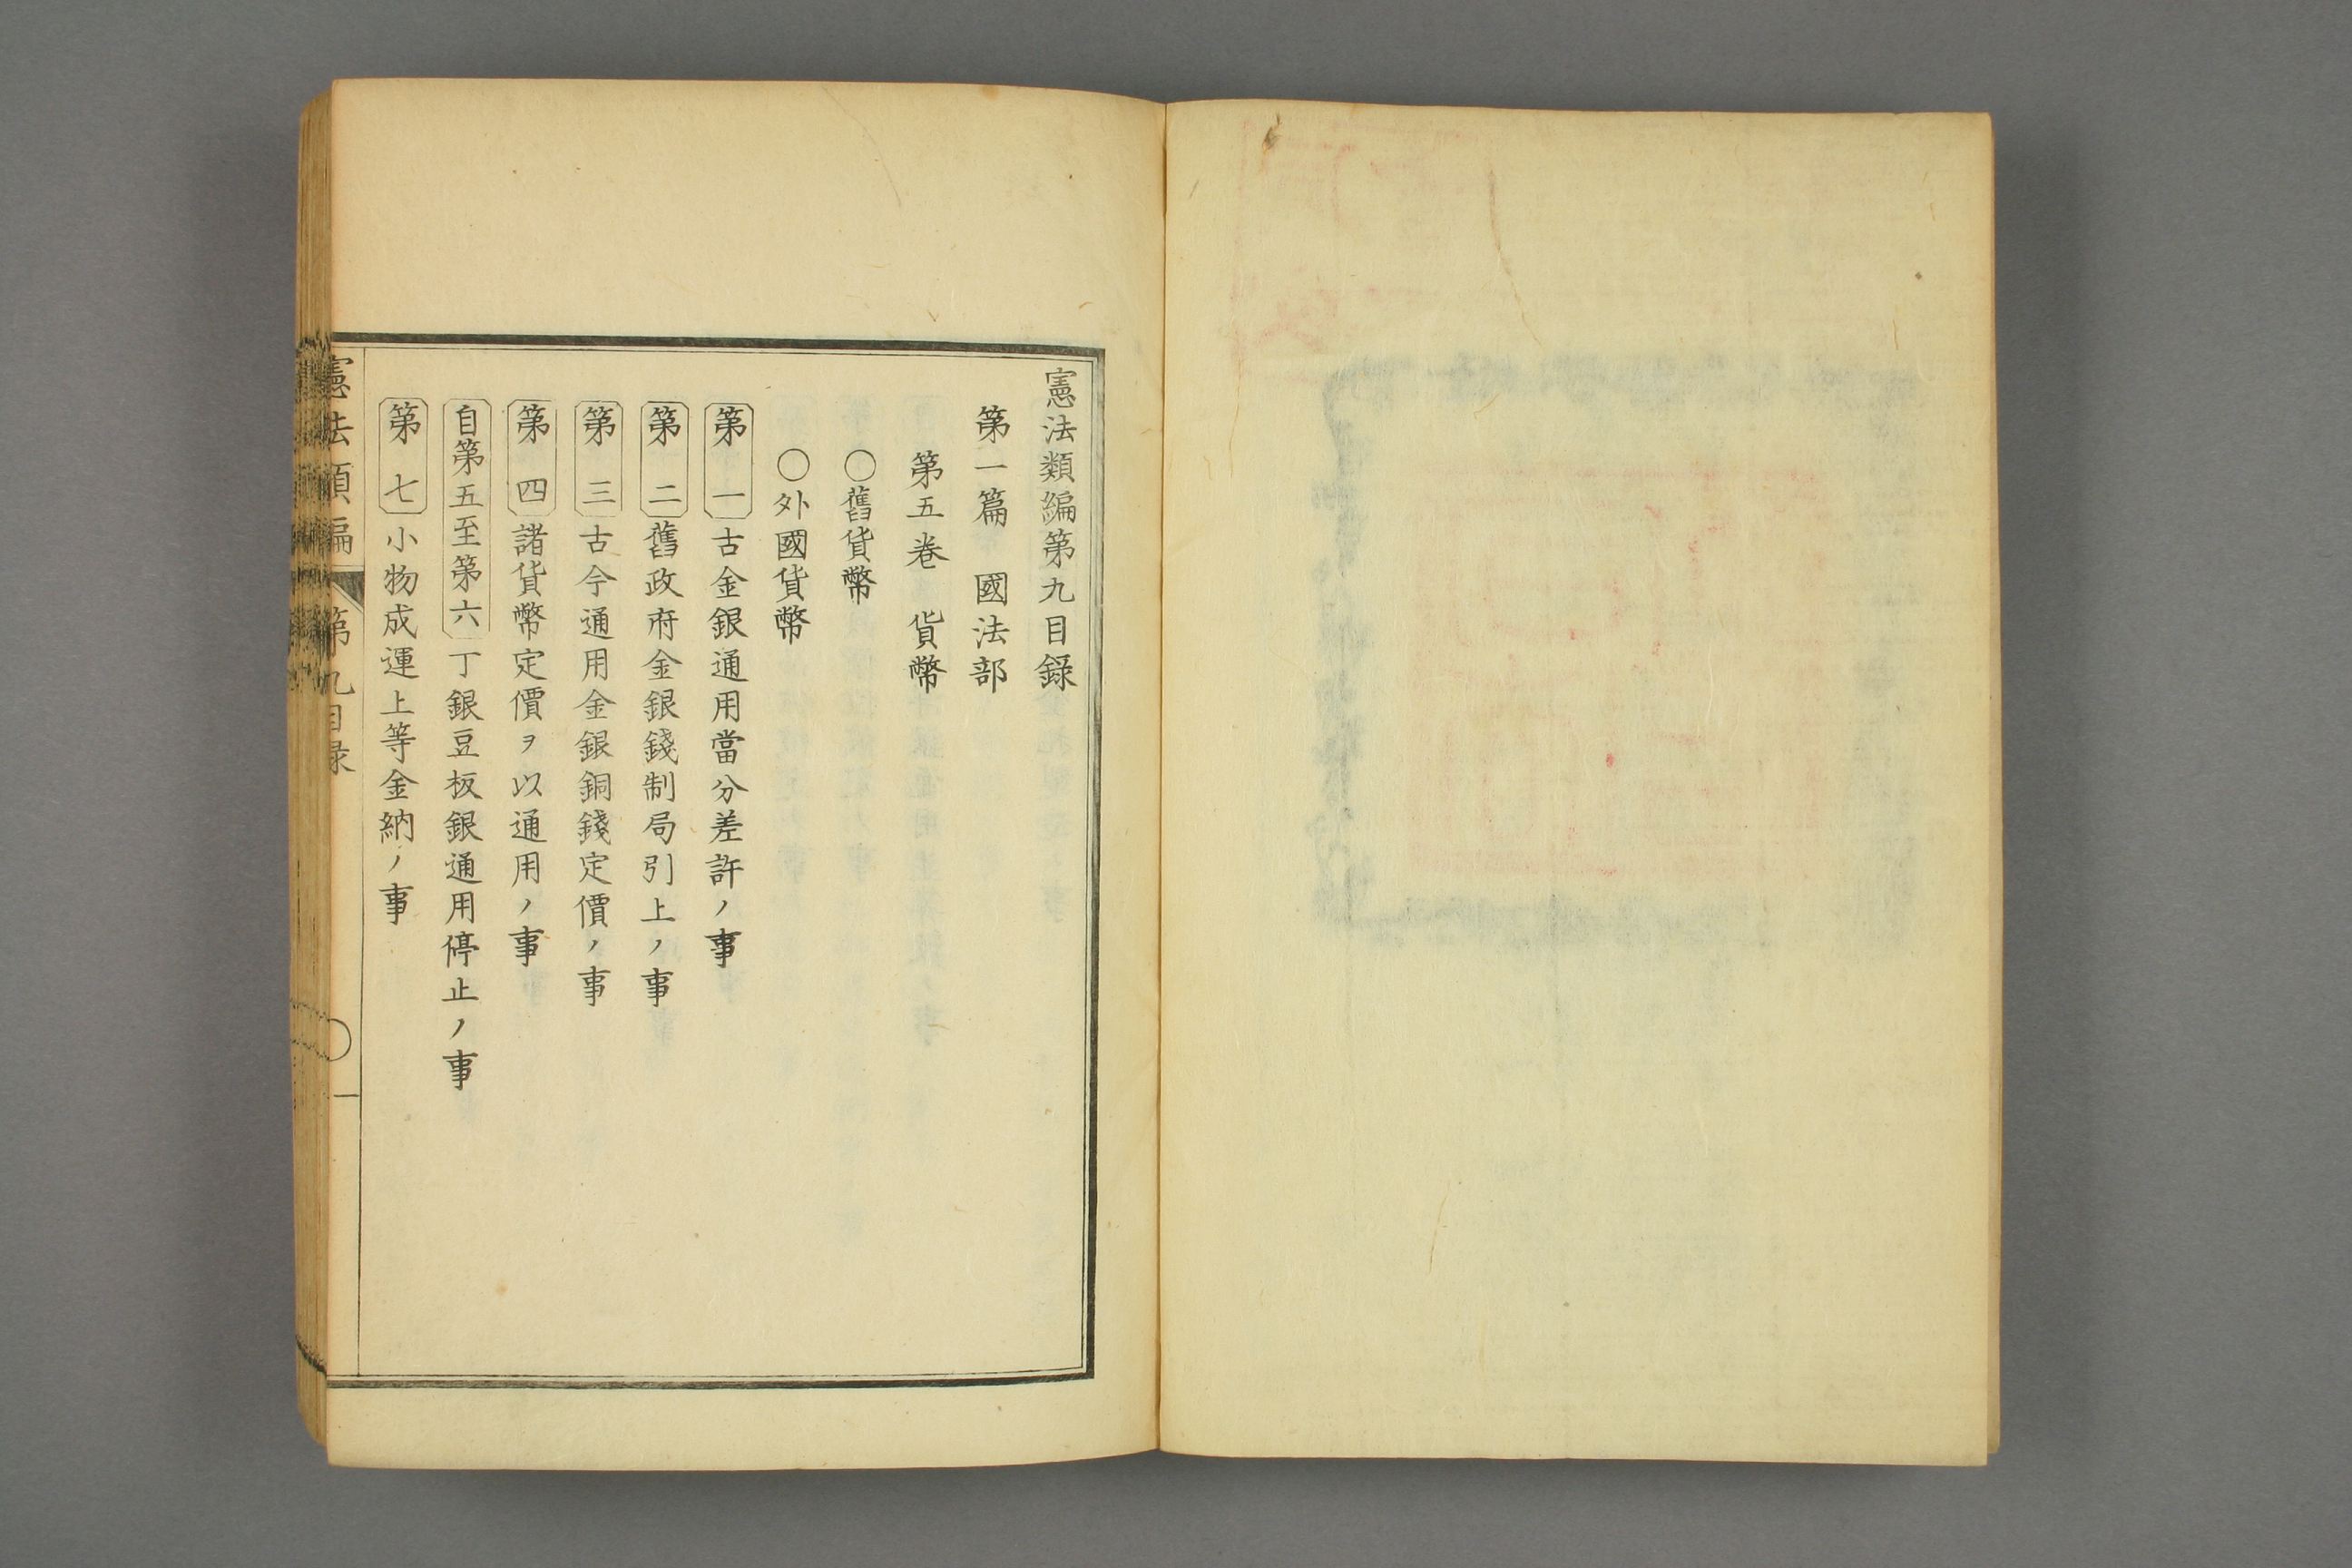 憲法類編第九目錄
第一篇　國法部
第五卷　貨幣
〇舊貨幣
〇外國貨幣
第一　古金銀通用當分差許ノ事
第二　舊政府金銀錢制局引上ノ事
第三　古今通用金銀銅錢定價ノ事
第四　諸貨幣定價ヲ以通用ノ事
自第五至第六　丁銀豆板銀通用停止ノ事
第七　小物成運上等金納ノ事
憲法類編　第九目录　〇一